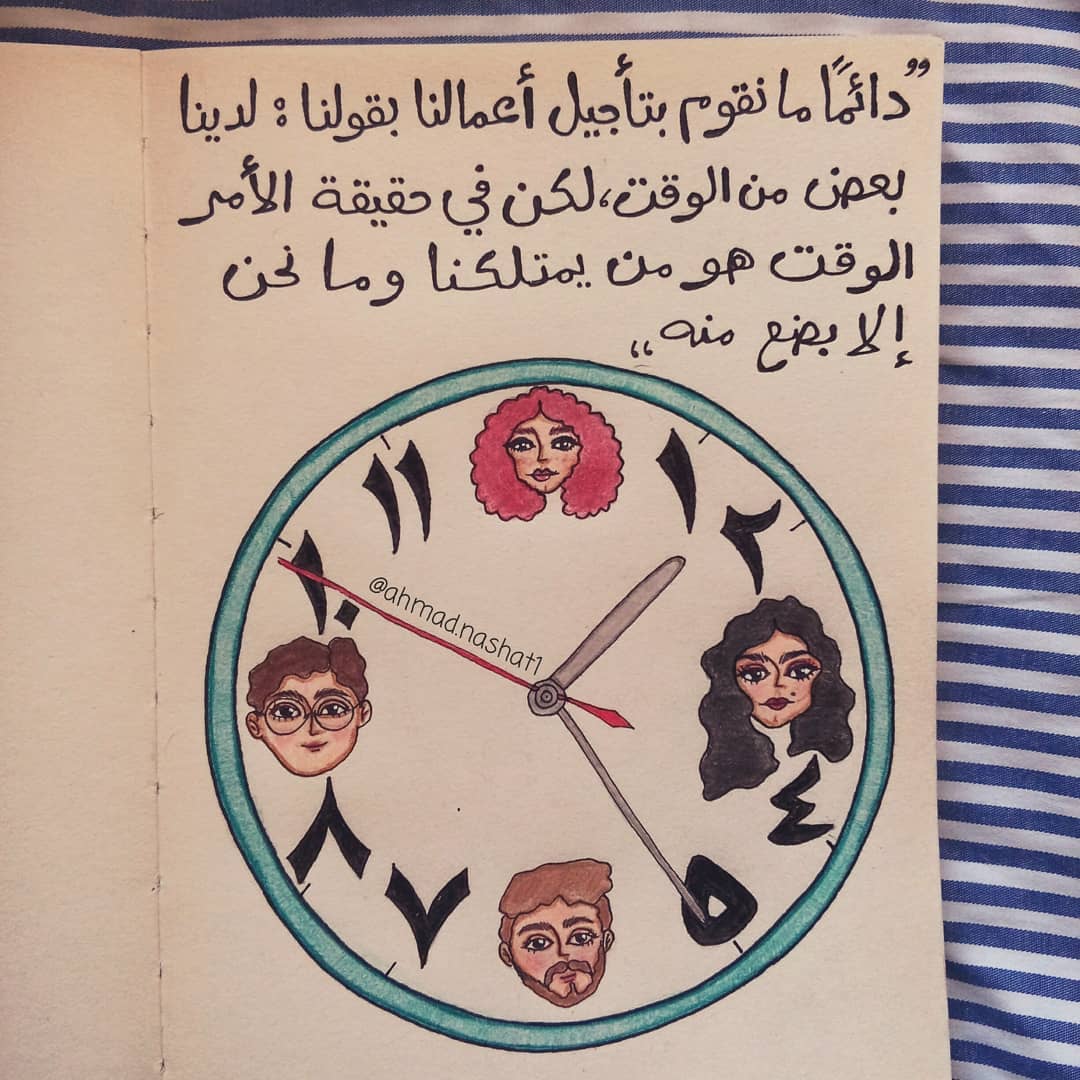 ”دائمًا ما نقوم بتأجيل أعمالنا بقولنا: لدينا
بعض من الوقت، لكن في حقيقة الأمر
الوقت هو من يمتلكنا وما نحن
إلا بضع منه“
١١
١
٢
١٠
@ahmad.nashat1
٤
٨
٧
٥